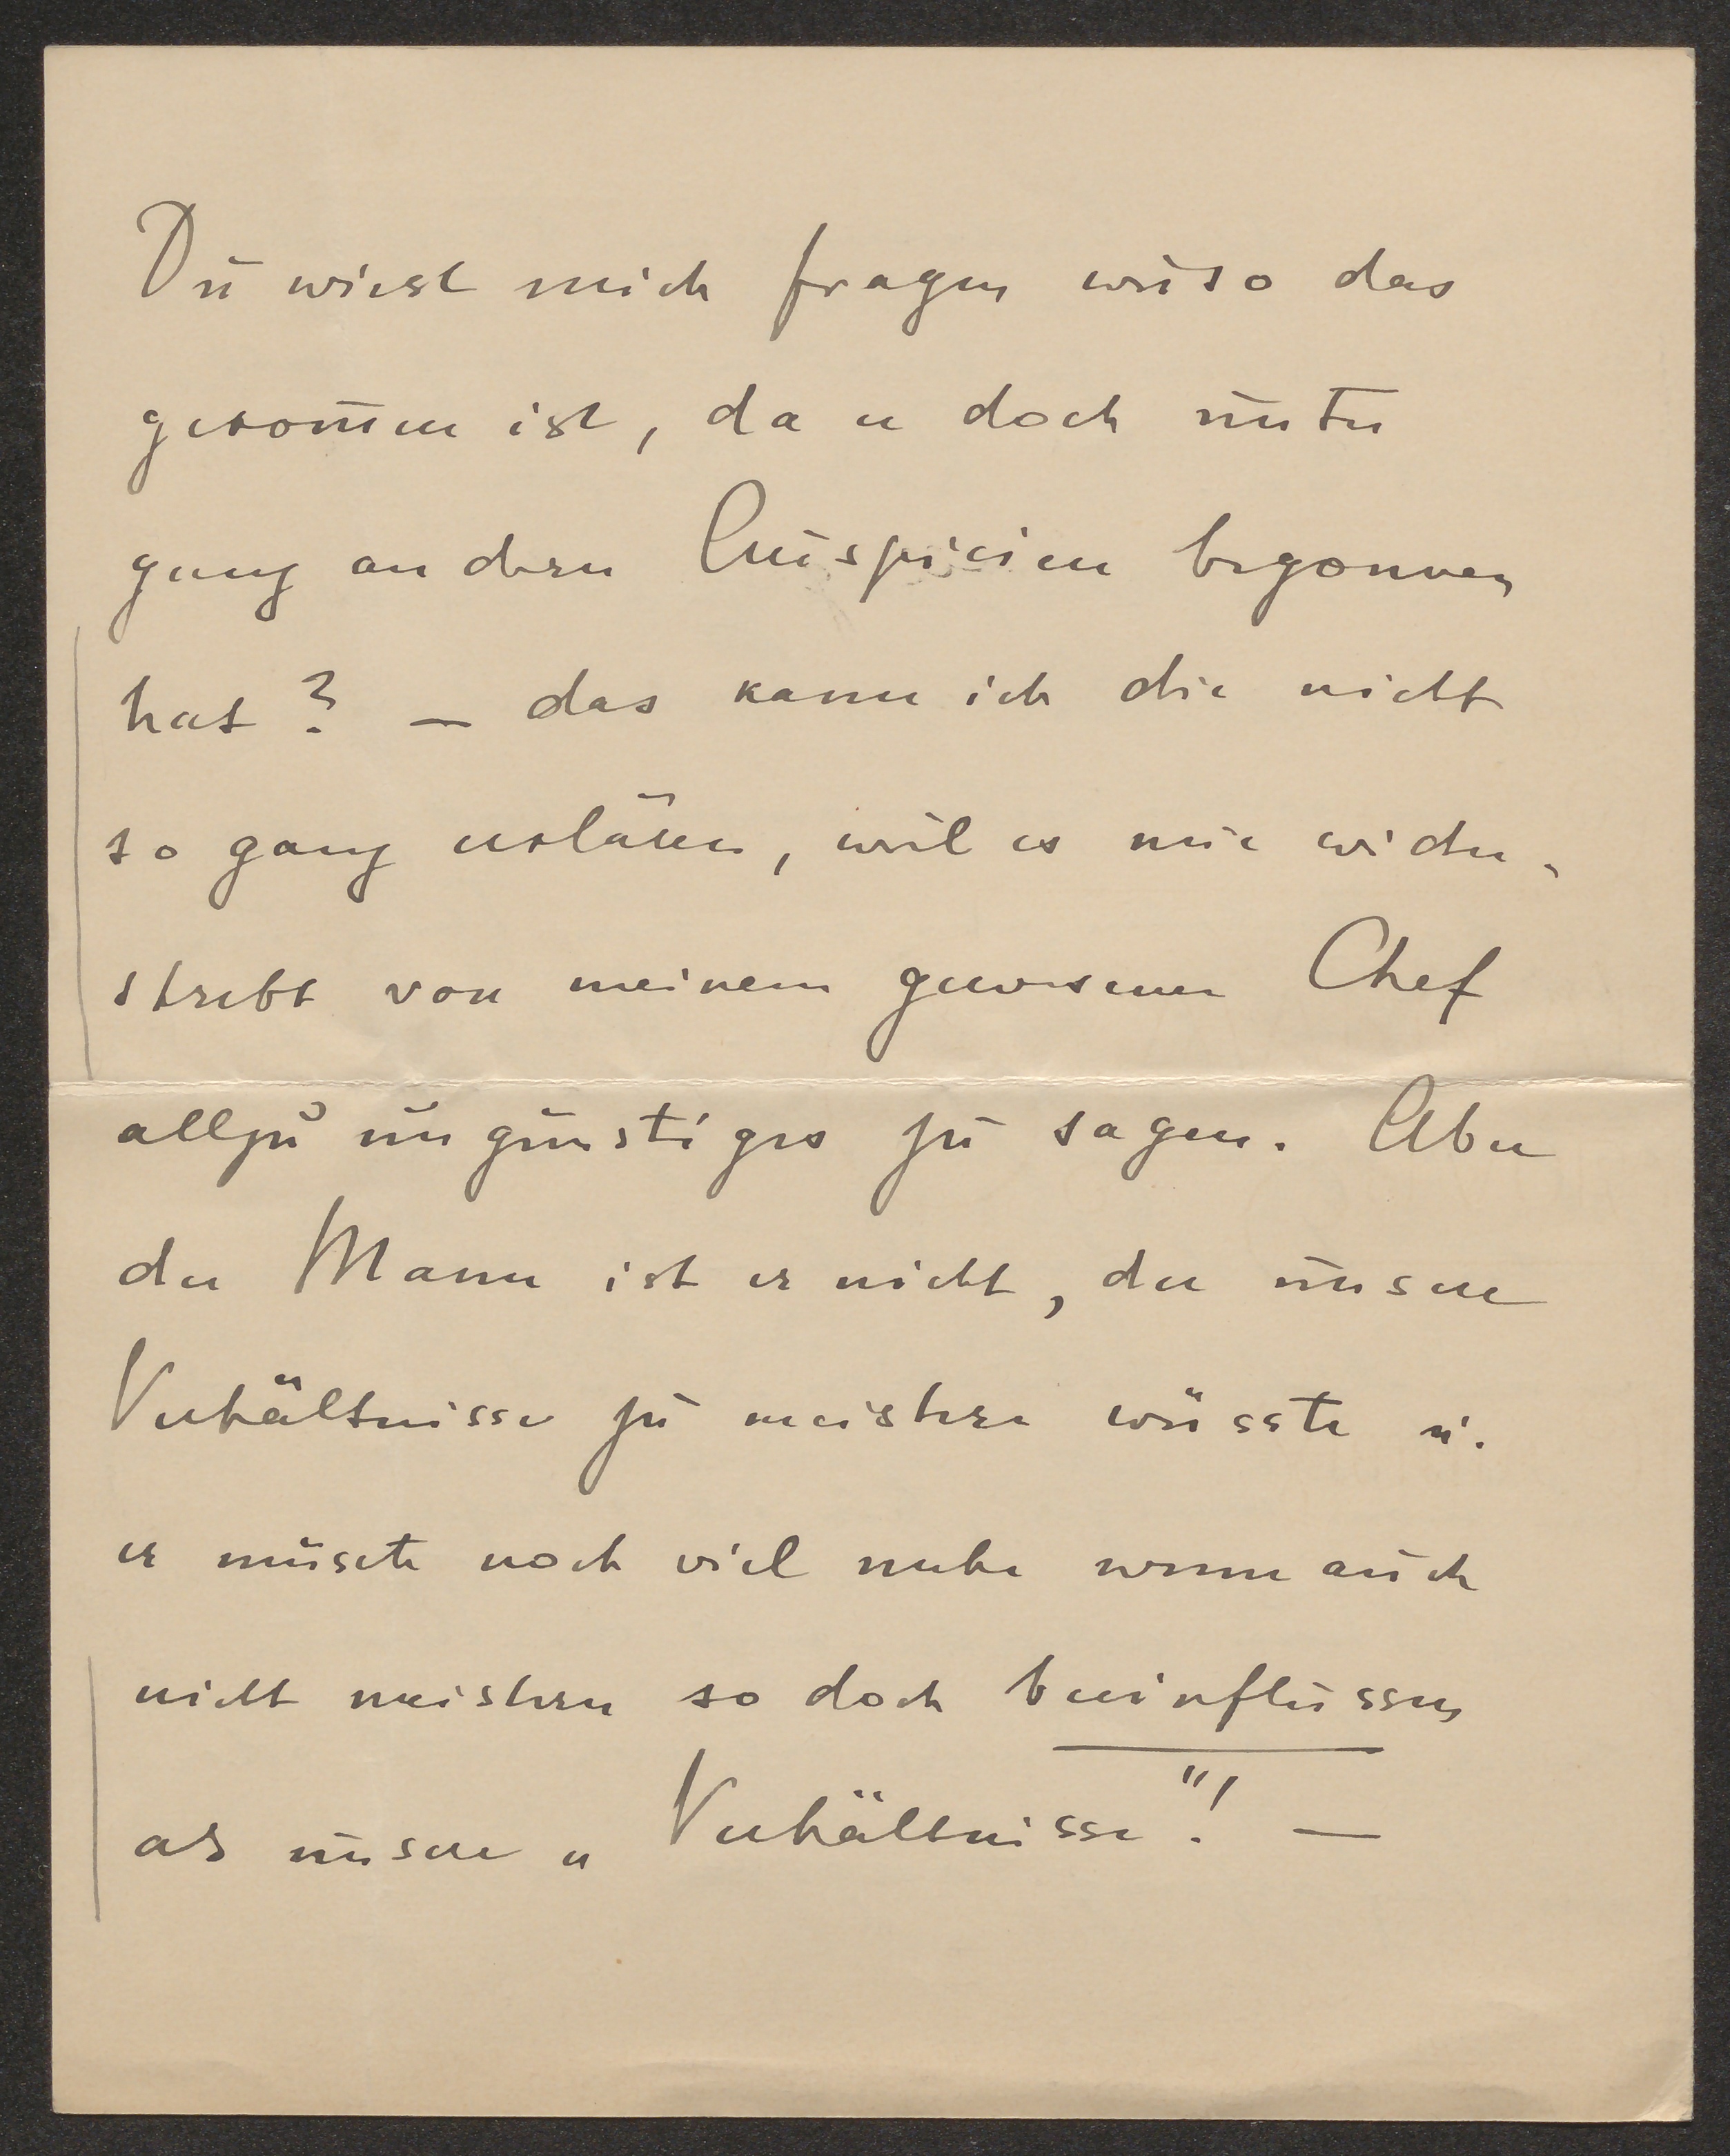 Du wirst mich fragen wieso das
gekom̄en ist, da er doch unter
ganz andern Auspicien begonnen
hat? – das kann ich dir nicht
so ganz erklären, weil es mir wider-
strebt von meinem gewesenen Chef
allzu ungünstiges zu sagen. Aber
der Mann ist er nicht, der unsere
Verhältnisse zu meistern wüsste u.
er müsste noch viel mehr wenn auch
nicht meistern so doch beeinflussen
als unsere „Verhältnisse"! –